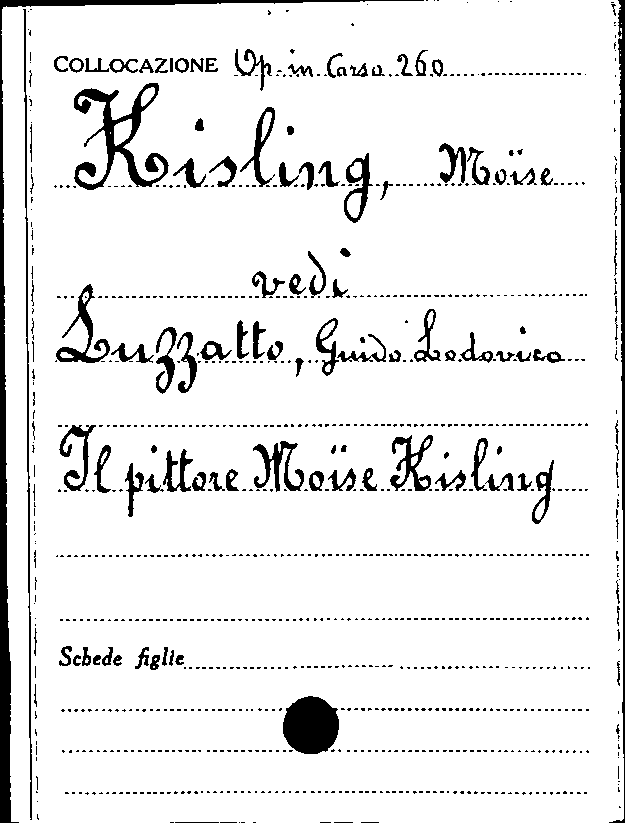 COLLOCAZIONE Op. in Corso 260
Kisling, Moïse
vedi
Luzzatto, Guido Lodovico
Il pittore Moïse Kisling
Schede figlie